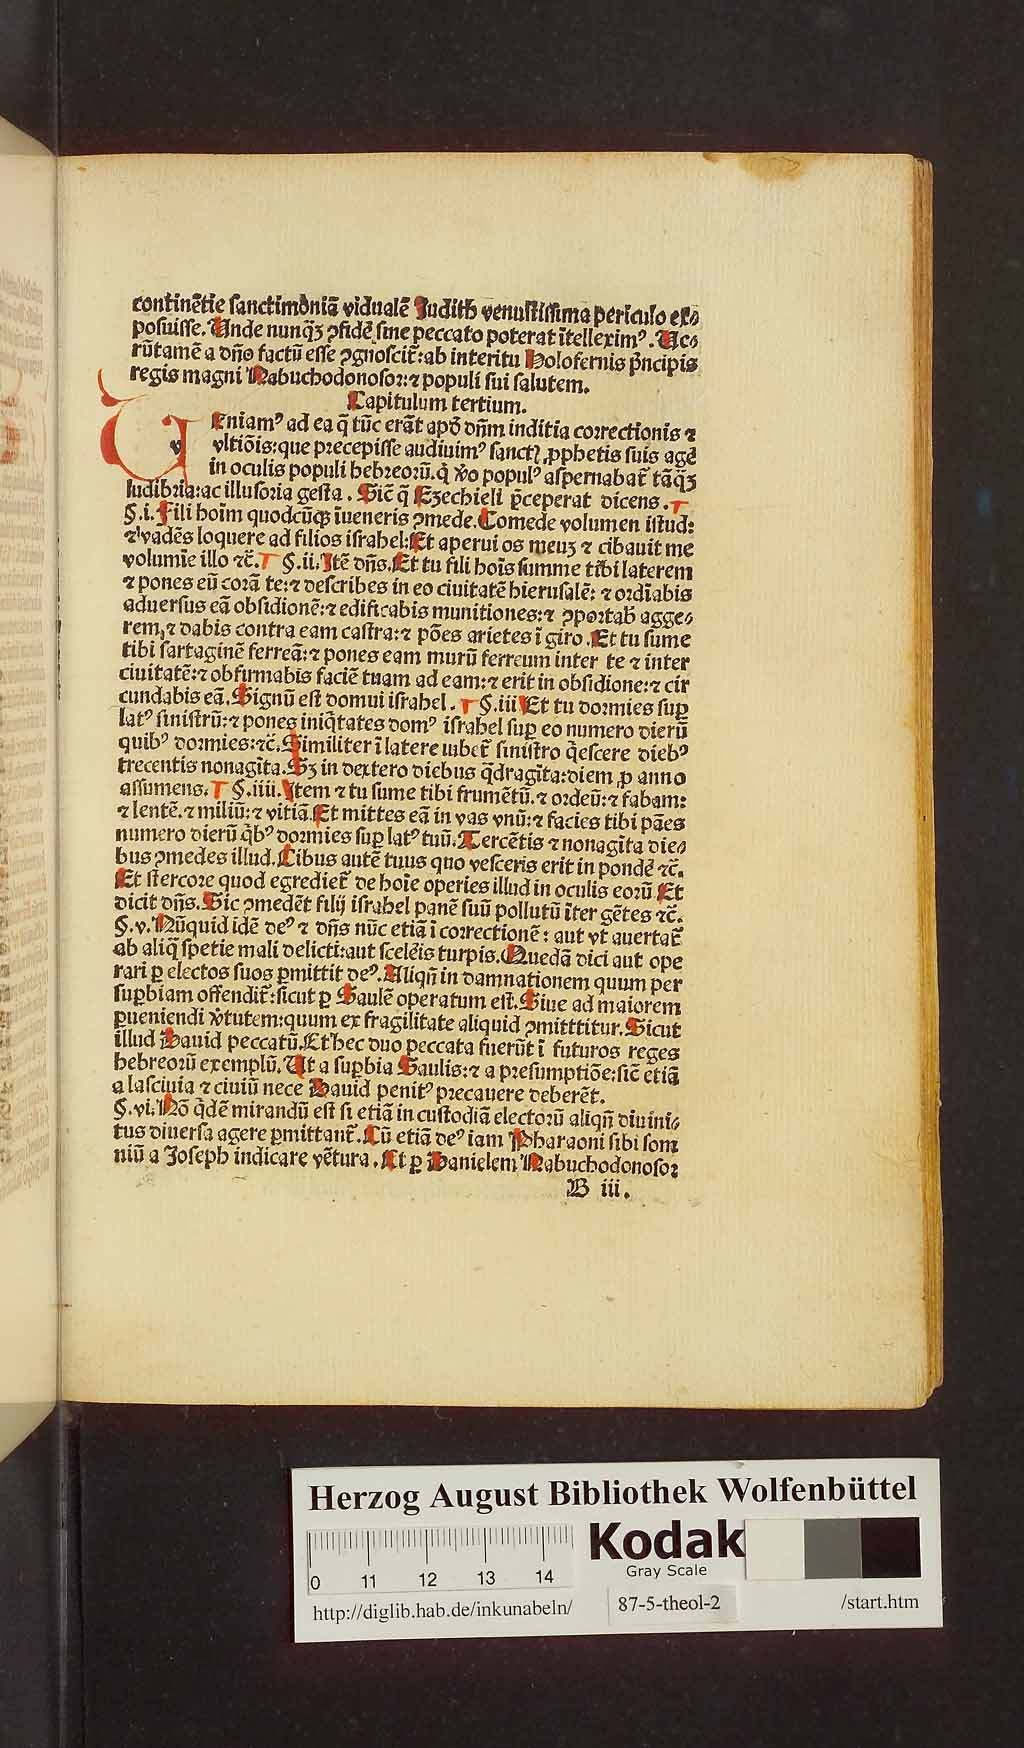 continētie sanctimōniā vidualē Judith venustissima periculo ex⸗
posuisse. Unde nunqꝫ ꝯfidē sine peccato poterat ītelleximꝰ. Ue⸗
rūtamē a dn̄o factū esse ꝯgnoscit̄: ab interitu Holofernis p̄ncipis
regis magni Nabuchodonosor: ⁊ populi sui salutem.
Capitulum tertium.
UEniamꝰ ad ea q̄ tūc erāt apd̄ dn̄m inditia correctionis ⁊
vltiōis: que precepisse audiuimꝰ sanctꝭ ꝓphetis suis agē
in oculis populi hebreorū. q̄ v̄o populꝰ aspernabat̄ tāqꝫ
ludibria: ac illusoria gesta. Sic̄ q̄ Ezechieli p̄ceperat dicens.
§. i. Fili hoīm quodcūqꝫ īueneris ꝯmede. Comede volumen istud:
⁊ vadēs loquere ad filios israhel: Et aperui os meuꝫ ⁊ cibauit me
volumīe illo ⁊c̄. §. ii. Itē dn̄s. Et tu fili hoīs summe tibi laterem
⁊ pones eū corā te: ⁊ describes in eo ciuitatē hierusalē: ⁊ ordīabis
aduersus eā obsidionē: ⁊ edificabis munitiones: ⁊ ꝯportab̄ agge⸗
rem, ⁊ dabis contra eam castra: ⁊ pōes arietes ī giro. Et tu sume
tibi sartaginē ferreā: ⁊ pones eam murū ferreum inter te ⁊ inter
ciuitatē: ⁊ obfirmabis faciē tuam ad eam: ⁊ erit in obsidione: ⁊ cir
cundabis eā. Signū est domui israhel. §. iii Et tu dormies suꝑ
latꝰ sinistrū: ⁊ pones iniq̄tates domꝰ israhel suꝑ eo numero dierū
quibꝰ dormies: ⁊c̄. Similiter ī latere iubet̄ sinistro q̄escere diebꝰ
trecentis nonagīta. Sꝫ in dextero diebus q̄dragīta: diem ꝓ anno
assumens. §. iiii. Item ⁊ tu sume tibi frumētū. ⁊ ordeū: ⁊ fabam:
⁊ lentē. ⁊ miliū: ⁊ vitiā. Et mittes eā in vas vnū: ⁊ facies tibi pāes
numero dierū q̄bꝰ dormies suꝑ latꝰ tuū. Tercētis ⁊ nonagīta die⸗
bus ꝯmedes illud. Cibus autē tuus quo vesceris erit in pondē ⁊c̄.
Et stercore quod egrediet̄ de hoīe operies illud in oculis eorū Et
dicit dn̄s. Sic ꝯmedēt filij israhel panē suū pollutū īter gētes ⁊c̄.
§. v. Nūquid idē deꝰ ⁊ dn̄s nūc etiā ī correctionē: aut vt auertat̄
ab aliq̄ spetie mali delicti: aut scelēis turpis. Quedā dici aut ope
rari ꝑ electos suos ꝑmittit deꝰ. Aliqn̄ in damnationem quum per
suꝑbiam offendit̄: sicut ꝑ Saulē operatum est. Siue ad maiorem
ꝑueniendi v̄tutem: quum ex fragilitate aliquid ꝯmitttitur. Sicut
illud Dauid peccatū. Et hec duo peccata fuerūt ī futuros reges
hebreorū exemplū. Ut a suꝑbia Saulis: ⁊ a presumptiōe: sic̄ etiā
a lasciuia ⁊ ciuiū nece Dauid penitꝰ precauere deberēt.
§. vi. Nō q̄dē mirandū est si etiā in custodiā electorū aliqn̄ diuini⸗
tus diuersa agere ꝑmittant̄. Cū etiā deꝰ iam Pharaoni sibi som
niū a Joseph indicare vētura. Et ꝑ Danielem Nabuchodonosor
B iii.
Herzog August Bibliothek Wolfenbüttel
Kodak
Gray Scale
0 11 12 13 14
http://diglib.hab.de/inkunabeln/ 87-5-theol-2 /start.htm